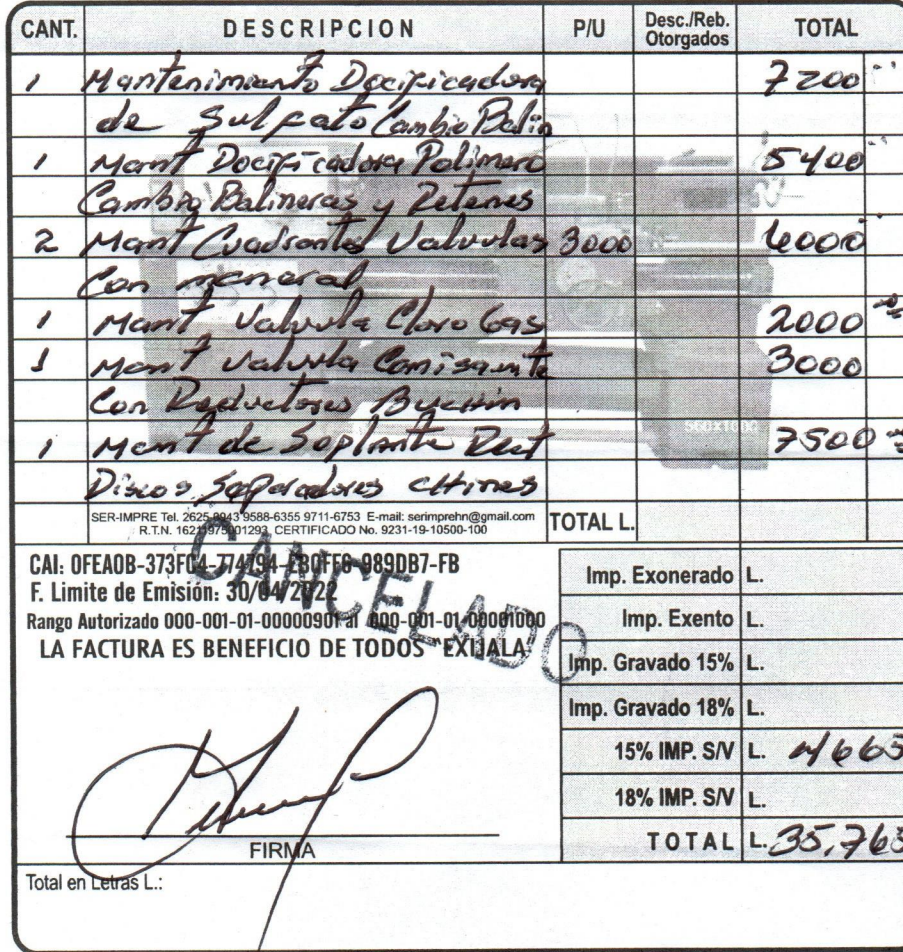 CANT. DESCRIPCION P/U Desc./Reb. Otorgados TOTAL
1 Mantenimiento Docificadora 7200
de Sulfato Cambio Balin
1 Mant Docificadora Polimero 5400
Cambio Balineras y Retenes
2 Mant Cuadrantes Valvulas 3000 6000
Con maneral
1 Mant Valvula Cloro Gas 2000
1 Mant Valvula 3000
Con Reductores
1 Mant de Soplante Rect 7500
Discos Separadores
560X1000
SER-IMPRE Tel. 2625-0943 9588-6355 9711-6753 E-mail: serimprehn@gmail.com
R.T.N. CERTIFICADO No. 9231-19-10500-100
TOTAL L.
CAI: 0FEA0B-373FC4-774794-EB0FF6-989DB7-FB
F. Limite de Emisión: 30/04/2022
Rango Autorizado 000-001-01-00000901 al 000-001-01-00001000
LA FACTURA ES BENEFICIO DE TODOS "EXIJALA"
CANCELADO
Imp. Exonerado L.
Imp. Exento L.
Imp. Gravado 15% L.
Imp. Gravado 18% L.
15% IMP. S/V L. 4665
18% IMP. S/V L.
TOTAL L. 35,765
FIRMA
Total en Letras L.: